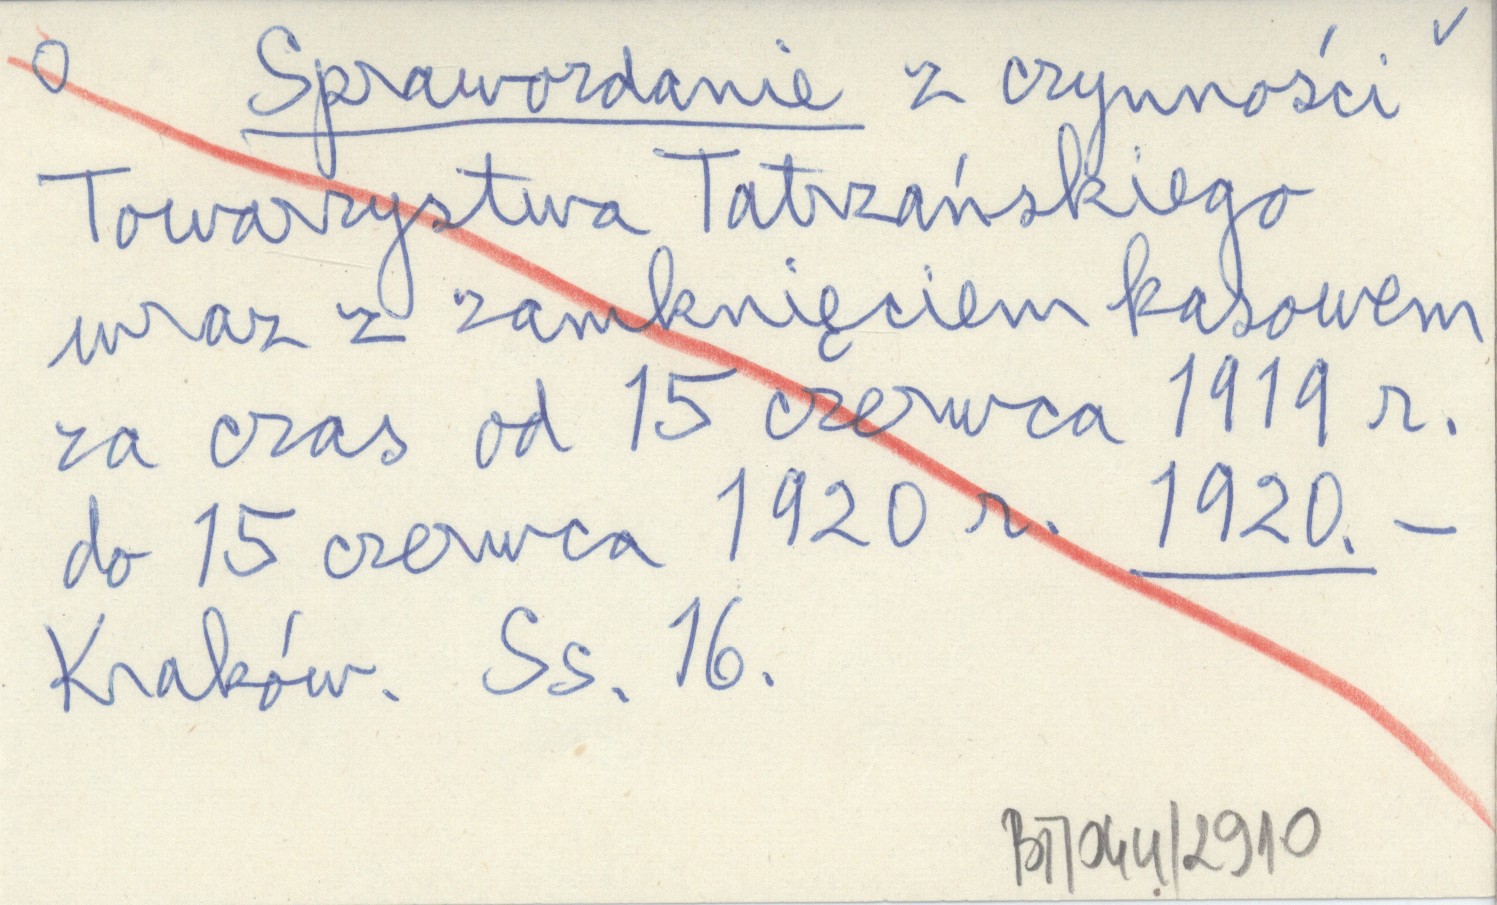 O Sprawozdanie z czynności ✓
Towarzystwa Tatrzańskiego
wraz z zamknięciem kasowem
za czas od 15 czerwca 1919 r.
do 15 czerwca 1920 r. 1920. –
Kraków. Ss. 16.
BT/044/2910